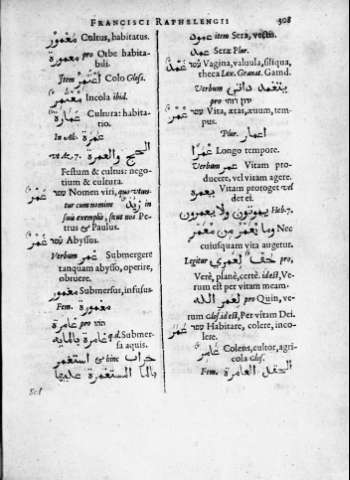 FRANCISCI RAPHELENGII 508
معمور Cultus, habitatus.
معمورة pro Orbe habitabili.
Item اعتمر Colo Gloss.
معتمر Incola ibid.
عمارة Cultura: habitatio.
In Ab. عمرة
الحج والعمرة
Festum & cultus: negotium & cultura.
عمر עמר Nomen viri, quo utuntur cum nomine زيد in
suis exemplis, sicut nos Petrus & Paulus.
غمر עמר Abyssus.
Verbum غمر Submergere
tanquam abysso, operire,
obruere.
مغمور Submersus, infusus.
Fem. مغمورة
غامرة pro
غامرة بالمايه Submersa aquis.
خراب & hinc استغمر
بالما المستغمرة عليها
عمود item Sera, vectis.
عمد Seræ Plur.
غمد עמד Vagina, valuula, siliqua,
theca Lex. Granat. Gamd.
Verbum يتغمد ذاتي
pro
عمر עמר Vita, ætas, æuum, tempus.
Plur. اعمار
عمرا Longo tempore.
Verbum عمر Vitam producere, vel vitam agere.
يعمره Vitam proroget vel
det ei.
يموتون ولا يعمرون Heb. 7.
وما يعمر من معمر Nec
cuiusquam vita augetur.
Legitur لعمري حف pro,
Verè, planè, certè. id est, Verum est per vitam meam.
لعمر الله pro Quin, verum Glos. id est, Per vitam Dei.
عمر עמר Habitare, colere, incolere.
عامر Colens, cultor, agricola Glos.
Fem. الحفل العامرة